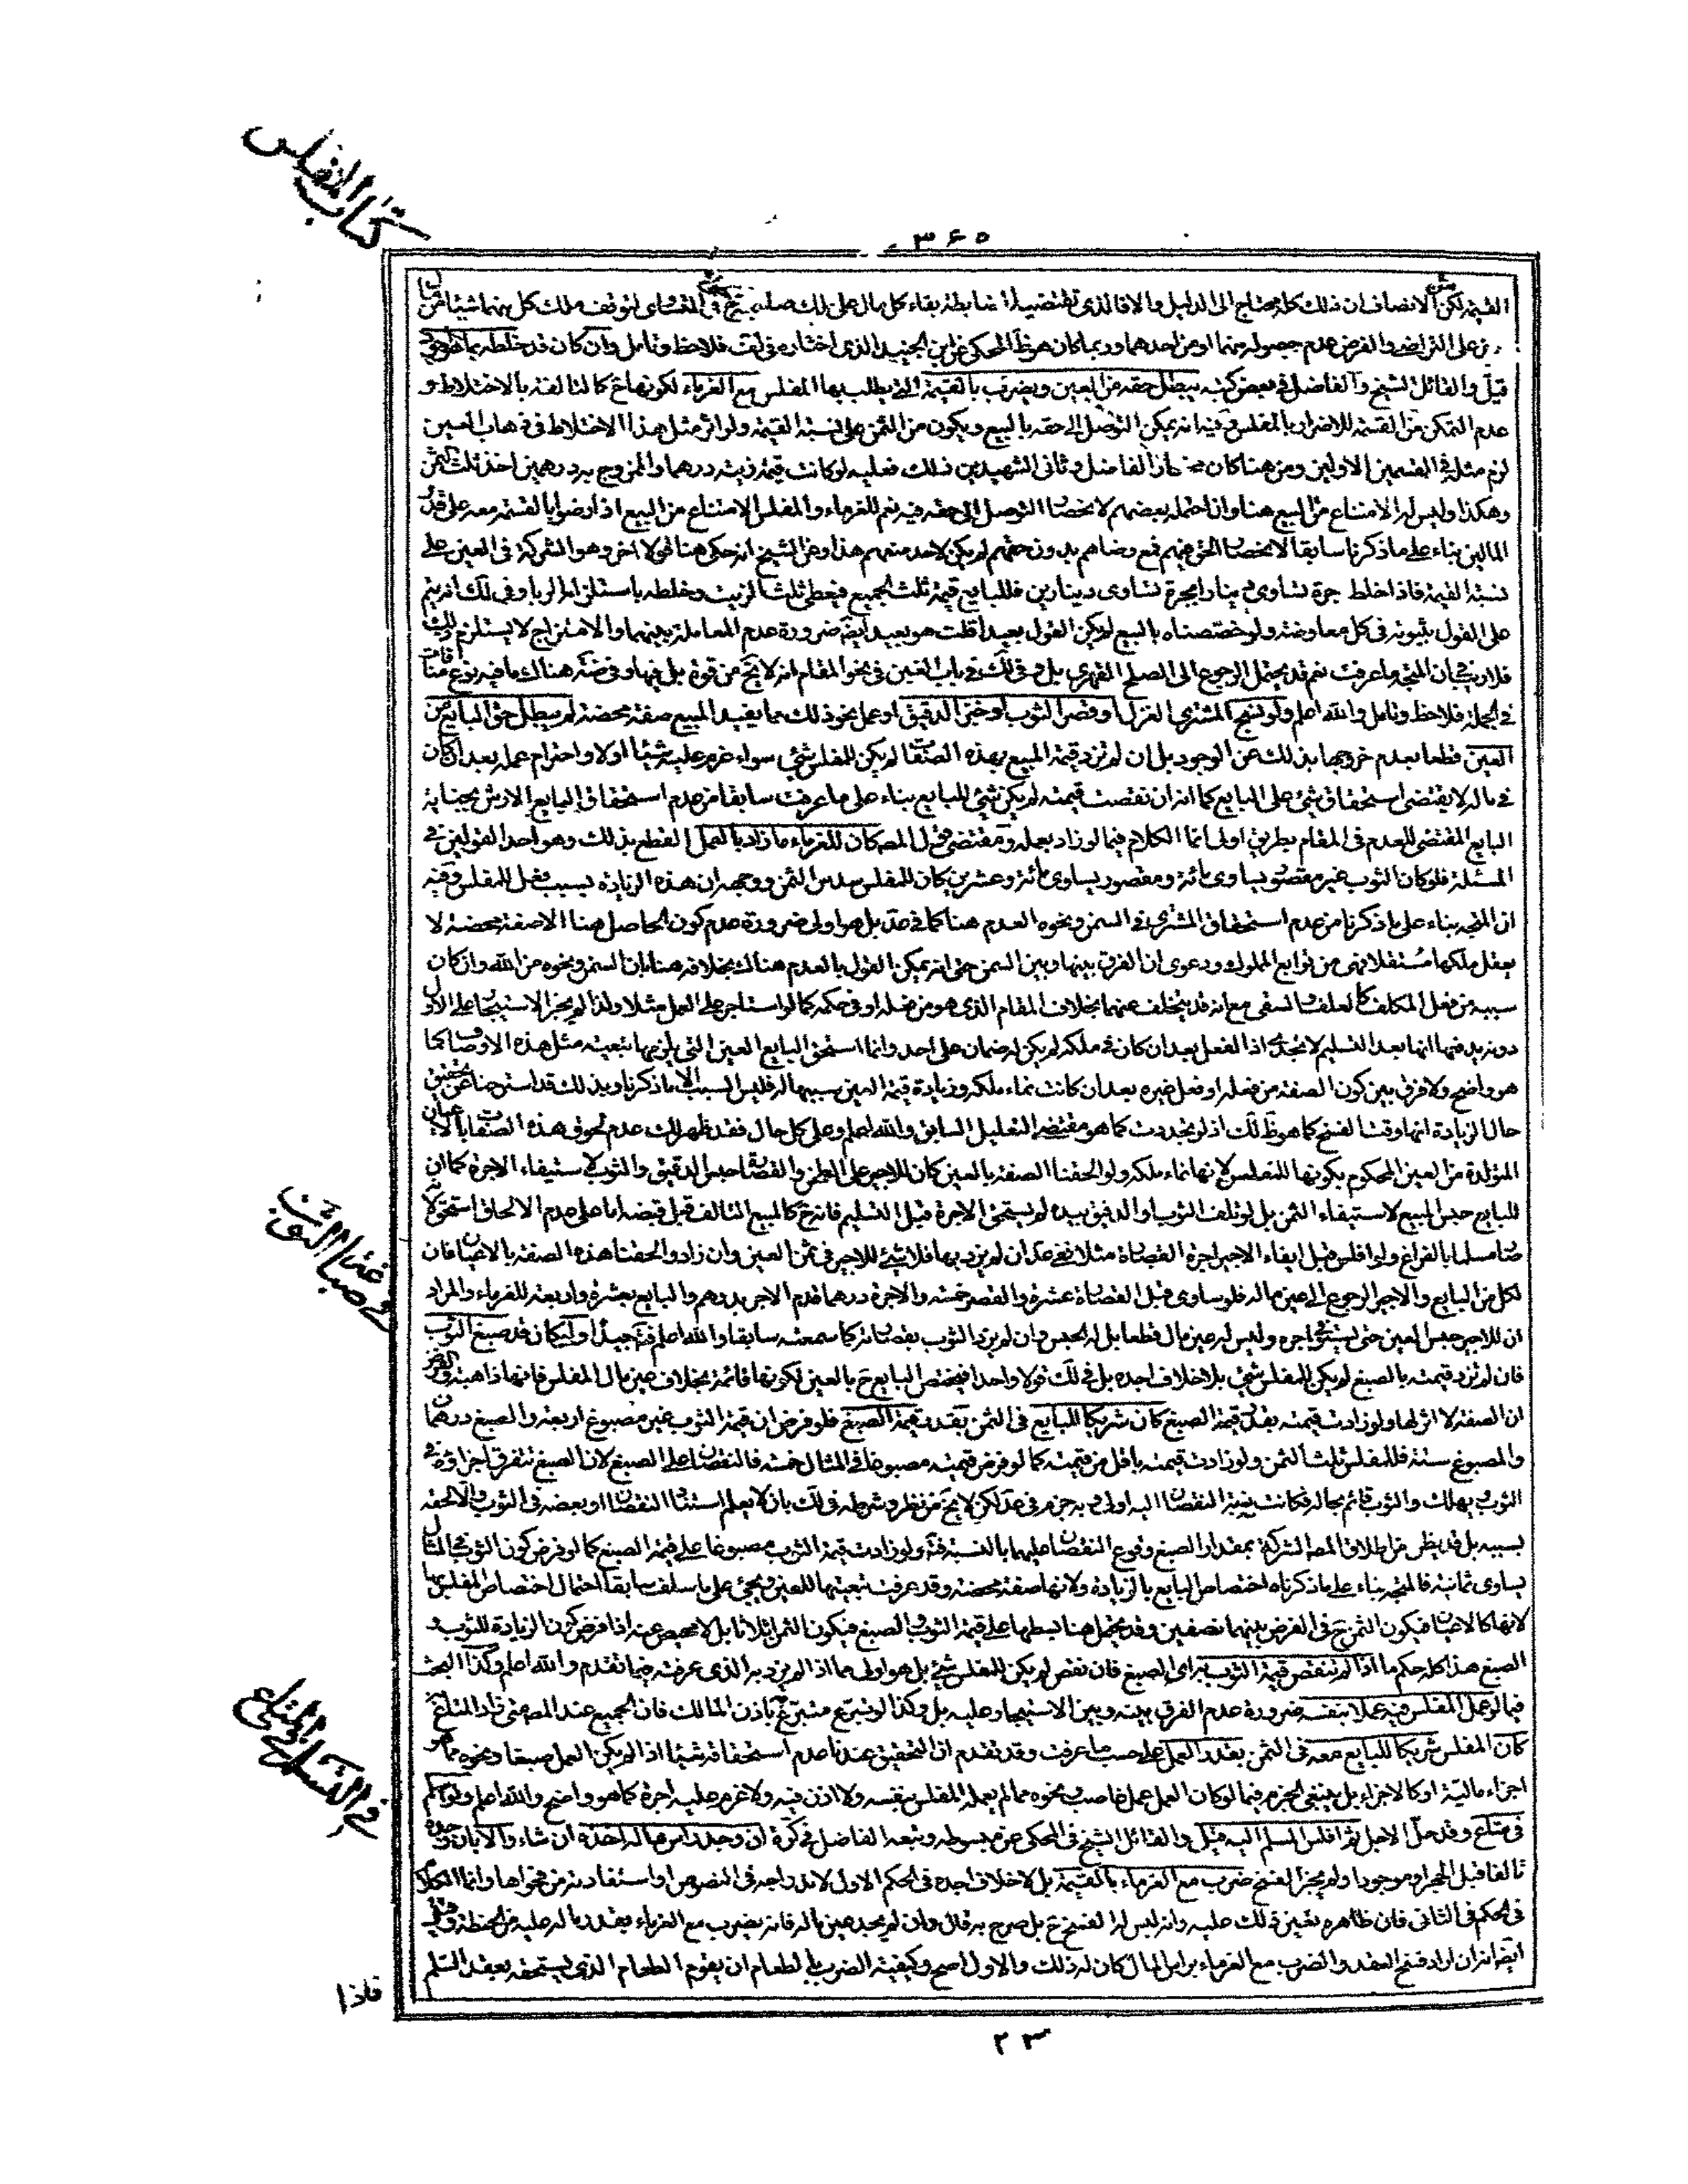 كتاب المفلس
٣٦٥
القيمة لكن الانصاف ان ذلك كله محتاج الى الدليل والا فالذي تقتضيه الضابطة بقاء كل مال على ملك صاحبه
على التراضي والفرض عدم حصوله منهما او من احدهما وربما كان هو ظ المحكى عن ابن الجنيد الذى اختاره فى لف فلاحظ وتامل وان كان قد خلطه بما هو اجود
قيل والقائل الشيخ والفاضل في بعض كتبه يبطل حقه من العين ويضرب بالقيمة التي يطلب بها المفلس مع الغرماء لكونها ح كالتالفة بالاختلاط و
عدم التمكن من القسمة للاضرار بالمفلس وفيه انه يمكن التوصل الى حقه بالبيع ويكون من الثمن على نسبة القيمة ولو اثر مثل هذا الاختلاط في ذهاب العين
لزم مثله في القسمين الاولين ومن هنا كان الفاضل وثانى الشهيدين ذلك فعليه لو كانت قيمة زيته درهما والممزوج به درهمين اخذ ثلث الثمن
وهكذا وليس له الامتناع من البيع هنا وان احتمله بعضهم لانحصار التوصل الى حقه فيه نعم للغرماء والمفلس الامتناع من البيع اذا رضوا بالقسمة معه على قدر
المالين بناء على ما ذكرنا سابقا لانحصار الحق فيهم فمع رضاهم بدون حقهم لم يكن لاحد منعهم هذا وعن الشيخ انه حكى هنا قولا اخر وهو الشركة فى العين على
نسبة القيمة فاذا خلط جرة تساوى دينارا بجرة تساوى دينارين فللبايع قيمة ثلث الجميع فيعطى ثلث الزيت وخلطه باستلزامه الربا وفى لك انه يتم
على القول بثبوته فى كل معاوضة ولو خصصناه بالبيع لم يكن القول بعيدا قلت هو بعيد ايضا ضرورة عدم المعاملة بينهما والامتزاج لا يستلزم ذلك
فلا ريب في ان المتجه ما عرفت نعم قد يحتمل الرجوع الى الصلح القهري بل في باب الغبن فى نحو المقام انه لا يخ من قوة
في الجملة فلاحظ وتامل والله اعلم ولو نسج المشترى الغزل او قصر الثوب او خبز الدقيق او عمل نحو ذلك مما يفيد المبيع صفة محضة لم يبطل حق البايع من
العين قطعا لعدم خروجها بذلك عن الوجود بل ان لم تزد قيمة المبيع بهذه الصفات لم يكن للمفلس شئ سواء غرم عليه شيئا اولا واحترام عمله بعد ان كان
في ماله لا يقتضى استحقاق شئ على البايع كما انه ان نقصت قيمته لم يكن شئ للبايع بناء على ما عرفت سابقا من عدم استحقاق البايع الارش بجناية
البايع المقتضى للعدم فى المقام بطريق اولى انما الكلام فيما لو زاد بعمله ومقتضى قول المصـ كان للغرماء ما زاد بالعمل القطع بذلك وهو احد القولين في
المسئلة فلو كان الثوب غير مقصور يساوى مائة ومقصور يساوى مائة وعشرين كان للمفلس سدس الثمن ووجهه ان هذه الزيادة بسبب فعل المفلس وفيه
ان المتجه بناء على ما ذكرنا من عدم استحقاق المشترى فى السمن ونحوه العدم هنا كما في عد بل هو اولى ضرورة عدم كون الحاصل هنا الا صفة محضة لا
يعقل ملكها مستقلا فهى من توابع المملوك ودعوى ان الفرق بينها وبين السمن حتى انه يمكن القول بالعدم هناك بخلافه هنا بان السمن ونحوه من الله وان كان
سببه من فعل المكلف كالعلف والسقى مع انه قد يتخلف عنهما بخلاف المقام الذى هو من فعله او فى حكمه كما لو استاجر على العمل مثلا ولذا لم يجز الاستيجار على الاول
دونه يدفعها انها بعد التسليم لا تجدى اذ الفعل بعد ان كان في ملكه لم يكن له ضمان على احد وانما استحق البايع العين التى يلزمها تبعية مثل هذه الاوصاف كما
هو واضح ولا فرق بين كون الصفة من فعله او فعل غيره بعد ان كانت نماء ملكه وزيادة قيمة العين بسببها له فليس السبب الا ما ذكرنا وبذلك قد استرحنا عن تحقيق
حال الزيادة انها وقت الفسخ كما هو ظ لك اذ لو تجددت كما هو مقتضى التعليل السابق والله اعلم وعلى كل حال فقد ظهر لك عدم لحوق هذه الصفات بالاعيان
المتولدة من العين المحكوم بكونها للمفلس لانها نماء ملكه ولو الحقنا الصفة بالعين كان للاجير على الطحن والقصارة حبس الدقيق والثوب لاستيفاء الاجرة كما ان
للبايع حبس المبيع لاستيفاء الثمن بل لو تلف الثوب او الدقيق بيده لم يستحق الاجرة قبل التسليم فانه ح كالمبيع التالف قبل قبضه اما على عدم الالحاق استحق
مسلما بالفراغ ولو افلس قبل ايفاء الاجير اجرة القصارة مثلا فعن عد ان لم يزد بها فلا شئ للاجير فى ثمن العين وان زاد والحقنا هذه الصفة بالاعيان كان
لكل من البايع والاجير الرجوع الى عين ماله فلو ساوى قبل القصارة عشرة والقصر خمسة والاجرة درهما قدم الاجير بدرهم والبايع بعشرة واربعة للغرماء والمراد
ان للاجير حبس العين حتى يستوفى اجره وليس له عين مال قطعا بل له الحبس وان لم يزد الثوب بقصارته كما سمعته سابقا والله اعلم او كان قد صبغ الثوب
فان لم تزد قيمته بالصبغ لم يكن للمفلس شئ بلا خلاف اجده بل فى لك قولا واحدا فيختص البايع ح بالعين لكونها قائمة بخلاف عين مال المفلس فانها ذاهبة والفرض
ان الصفة لا اثر لها ولو زادت قيمته بقدر قيمة الصبغ كان شريكا للبايع فى الثمن بقدر قيمة الصبغ فلو فرض ان قيمة الثوب غير مصبوغ اربعة والصبغ درهمان
والمصبوغ ستة فللمفلس ثلث الثمن ولو زادت قيمته باقل من قيمته كما لو فرض قيمته مصبوغا في المثال خمسة فالنقصان على الصبغ لان الصبغ تتفرق اجزاؤه في
الثوب ويهلك والثوب قائم بحاله فكانت نسبة النقصان اليه اولى وبه جزم فى عد لكن لا يخ من نظر وشرطه فى لك بان لا يعلم استناد النقصان او بعضه فى الثوب والا لحقه
بسببه بل قد يظهر من اطلاق المصـ الشركة بمقدار الصبغ وقوع النقصان عليهما بالنسبة ولو زادت قيمة الثوب مصبوغا على قيمة الصبغ كما لو فرض كون الثوب في المثال
يساوى ثمانية فالمتجه بناء على ما ذكرناه اختصاص البايع بالزيادة ولانها صفة محضة وقد عرفت تبعيتها للعين ويجئ على ما سلف سابقا احتمال اختصاص المفلس بها
لانها كالاعيان فيكون الثمن ح فى الفرض بينهما نصفين وقد يحتمل هنا بسطها على قيمة الثوب والصبغ فيكون الثمن اثلاثا بل لا محيص عنه اذا فرض كون الزيادة للثوب و
الصبغ هذا كله حكم ما اذا لم تنقص قيمة الثوب به اى الصبغ فان نقص لم يكن للمفلس شئ بل هو اولى مما اذا لم يزد به الذى عرفته فيما تقدم والله اعلم وكذا البحث
فيما لو عمل المفلس فيه عملا بنفسه ضرورة عدم الفرق بينه وبين الاستيجار عليه بل وكذا لو تبرع متبرع باذن المالك فان الجميع عند المصـ متى زاد المتاع
كان المفلس شريكا للبايع معه فى الثمن بقدر العمل على حسب ما عرفت وقد تقدم ان التحقيق عندنا عدم استحقاقه شيئا اذا لم يكن العمل صبغا ونحوه مما هو
اجزاء مالية او كالاجزاء بل ينبغى الجزم فيما لو كان العمل عمل غاصب ونحوه مما لم يعمله المفلس بنفسه ولا اذن فيه ولا غرم عليه اجرة كما هو واضح والله اعلم ولو اسلم
فى متاع وقد حل الاجل ثم افلس المسلم اليه قيل والقائل الشيخ فى المحكى عن مبسوطه وتبعه الفاضل في كرة ان وجد راس ماله اخذه ان شاء والا بان وجده
تالفا قبل الحجر او موجودا ولم يجز الفسخ ضرب مع الغرماء بالقيمة بل لا خلاف اجده فى الحكم الاول لاندراجه فى النصوص او استفادته من فحواها وانما الكلام
فى الحكم فى الثانى فان ظاهره تعين ذلك عليه وانه ليس له الفسخ ح بل صرح به قال وان لم يجد عين ماله فانه يضرب مع الغرماء بقدر ماله عليه من الحنطة وقيل
ايضا انه ان اراد فسخ العقد والضرب مع الغرماء براس المال كان له ذلك والاول اصح وكيفية الضرب بالطعام ان يقوم الطعام الذى يستحقه بعقد السلم
في صبغ الثوب
في السلم في المتاع
فاذا
٢٣